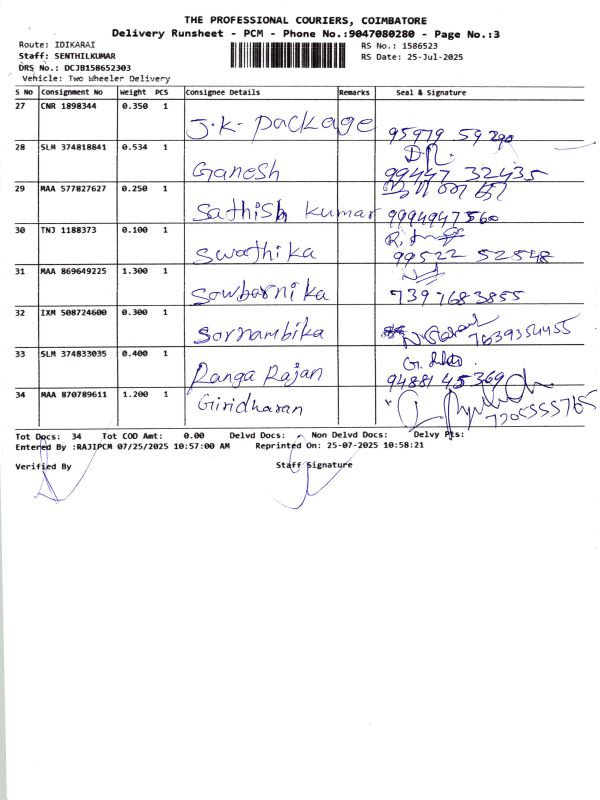 THE PROFESSIONAL COURIERS, COIMBATORE
Delivery Runsheet - PCM - Phone No.:9047080280 - Page No.:3
Route: IDIKARAI
RS No.: 1586523
Staff: SENTHILKUMAR
RS Date: 25-Jul-2025
DRS No.: DCJB158652303
Vehicle: Two Wheeler Delivery
S NO Consignment No Weight PCS Consignee Details Remarks Seal & Signature
27 CNR 1898344 0.350 1
J.K. package 95979 59290
28 SLM 374818841 0.534 1
Ganesh 99447 32435
29 MAA 577827627 0.250 1
Sathish kumar 9994947560
30 TNJ 1188373 0.100 1
Swathika 99522 52548
31 MAA 869649225 1.300 1
Sowbarnika 7397683855
32 IXM 508724600 0.300 1
Sornambika
33 SLM 374833035 0.400 1
Ranga Rajan 94881 45369
34 MAA 870789611 1.200 1
Giridharan
Tot Docs: 34 Tot COD Amt: 0.00 Delvd Docs: Non Delvd Docs: Delvy Pts:
Entered By :RAJIPCM 07/25/2025 10:57:00 AM Reprinted On: 25-07-2025 10:58:21
Verified By Staff Signature